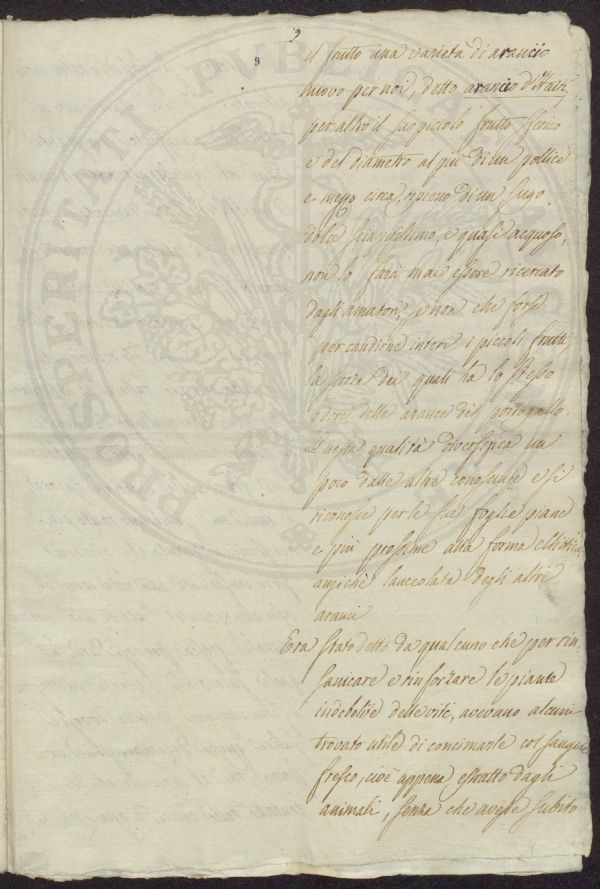 9
9
il frutto una varietà di arancio
nuovo per noi, detto arancio d'Haiti,
per altro il suo piccolo frutto sferico
e del diametro al più di un pollice
e mezzo circa, ripieno di un sugo
dolce scialbissimo, e quasi acquoso,
non lo farà mai essere ricercato
dagli amatori, se non che forse
per condirne interi i piccoli frutti,
la scorza dei quali ha lo stesso
odore delle arance del portogallo.
Questa qualità diversifica un
poco dalle altre conosciute e si
riconosce per le sue foglie piane
e più prossime alla forma ellittica,
anzichè lanceolata degli altri
aranci
Era stato detto da qualcuno che per rin-
sanicare e rinforzare le piante
indebolite delle viti, avevano alcuni
trovato utile di concimarle col sangue
fresco, cioè appena estratto dagli
animali, senza che avesse subito
PROSPERITATI PUBLICAE